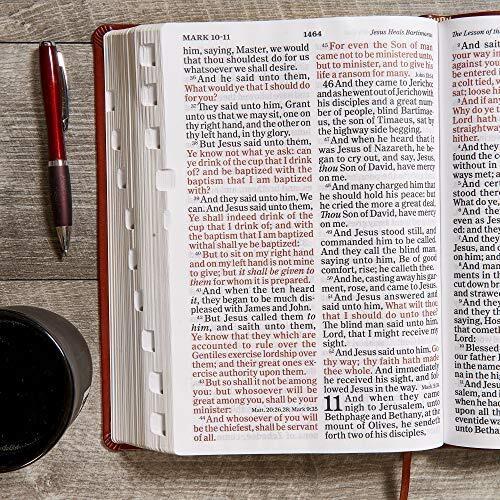 MARK 10-11
1464
Jesus Heals Bartimaeus
him, saying, Master, we would
that thou shouldest do for us
whatsoever we shall desire.
36 And he said unto them,
What would ye that I should do
for you?
37 They said unto him, Grant
unto us that we may sit, one on
thy right hand, and the other on
thy left hand, in thy glory.
38 But Jesus said unto them,
Ye know not what ye ask: can
ye drink of the cup that I drink
of? and be baptized with the
baptism that I am baptized
with?
39 And they said unto him, We
can. And Jesus said unto them,
Ye shall indeed drink of the
cup that I drink of; and with
the baptism that I am baptized
withal shall ye be baptized:
40 But to sit on my right hand
and on my left hand is not mine
to give; but it shall be given to
them for whom it is prepared.
41 And when the ten heard
it, they began to be much dis-
pleased with James and John.
42 But Jesus called them to
him, and saith unto them,
Ye know that they which are
accounted to rule over the
Gentiles exercise lordship over
them; and their great ones ex-
ercise authority upon them.
43 But so shall it not be among
you: but whosoever will be
great among you, shall be your
minister:
Matt. 20:26,28; Mark 9:35
44 And whosoever of you will
be the chiefest, shall be servant
of all.
45 For even the Son of man
came not to be ministered unto,
but to minister, and to give his
life a ransom for many.
46 And they came to Jericho:
and as he went out of Jericho with
his disciples and a great num-
ber of people, blind Bartimaeus,
the son of Timaeus, sat by
the highway side begging.
47 And when he heard that it
was Jesus of Nazareth, he be-
gan to cry out, and say, Jesus,
thou Son of David, have mercy
on me.
48 And many charged him that
he should hold his peace: but
he cried the more a great deal,
Thou Son of David, have mercy
on me.
49 And Jesus stood still, and
commanded him to be called.
And they call the blind man,
saying unto him, Be of good
comfort, rise; he calleth thee.
50 And he, casting away his gar-
ment, rose, and came to Jesus.
51 And Jesus answered and
said unto him, What wilt thou
that I should do unto thee?
The blind man said unto him,
Lord, that I might receive my
sight.
52 And Jesus said unto him, Go
thy way; thy faith hath made
thee whole. And immediately
he received his sight, and fol-
lowed Jesus in the way.
11 And when they came
nigh to Jerusalem, unto
Bethphage and Bethany, at the
mount of Olives, he sendeth
forth two of his disciples,
The Lesson of the
2 And saith
your way in
against you:
be entered i
a colt tied, w
sat; loose hi
3 And if an
Why do ye
Lord hath
straightway
hither.